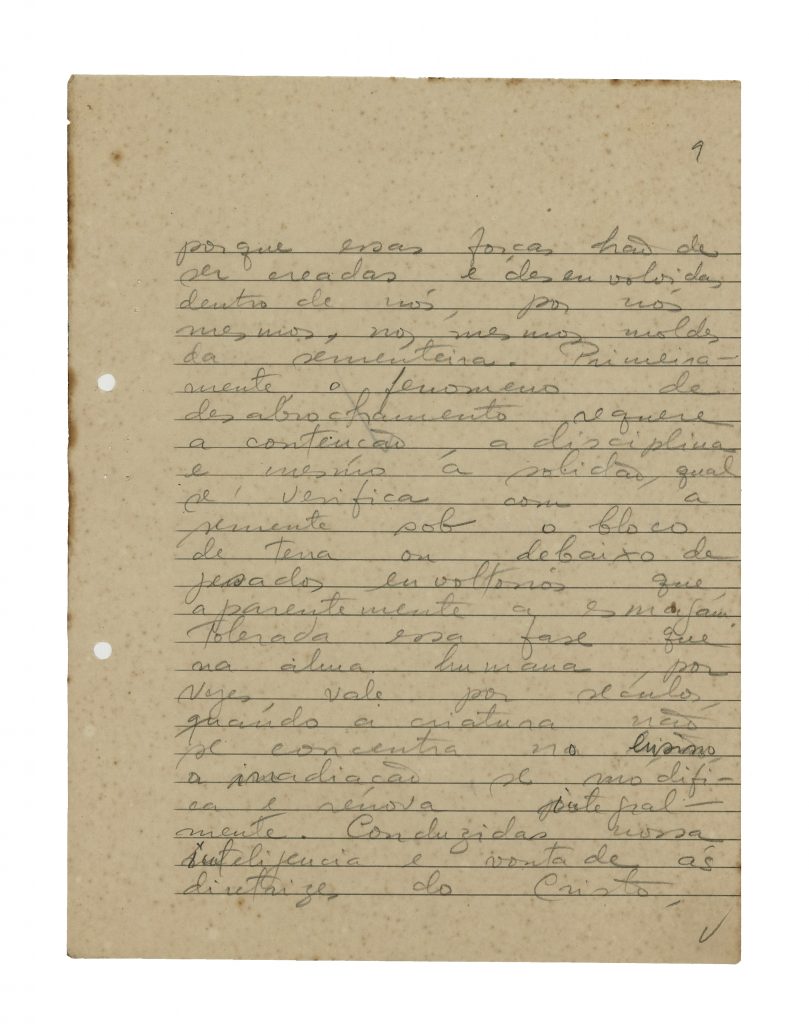 9
porque essas forças hão de
ser creadas e desenvolvidas
dentro de nós, por nós
mesmos, nos mesmos moldes
da sementeira. Primeira-
mente, o fenomeno de
desabrochamento requere
a contenção, a disciplina
e mesmo a solidão, qual
se verifica com a
semente sob o bloco
de terra ou debaixo de
pesados envoltorios que
aparentemente a esmagam.
Tolerada essa fase que
na alma humana, por
vezes, vale por séculos,
quando a criatura não
se concentra no ensino,
a irradiação se modifi-
ca e renova integral-
mente. Conduzidas nossa
inteligencia e vontade ás
diretrizes do Cristo,